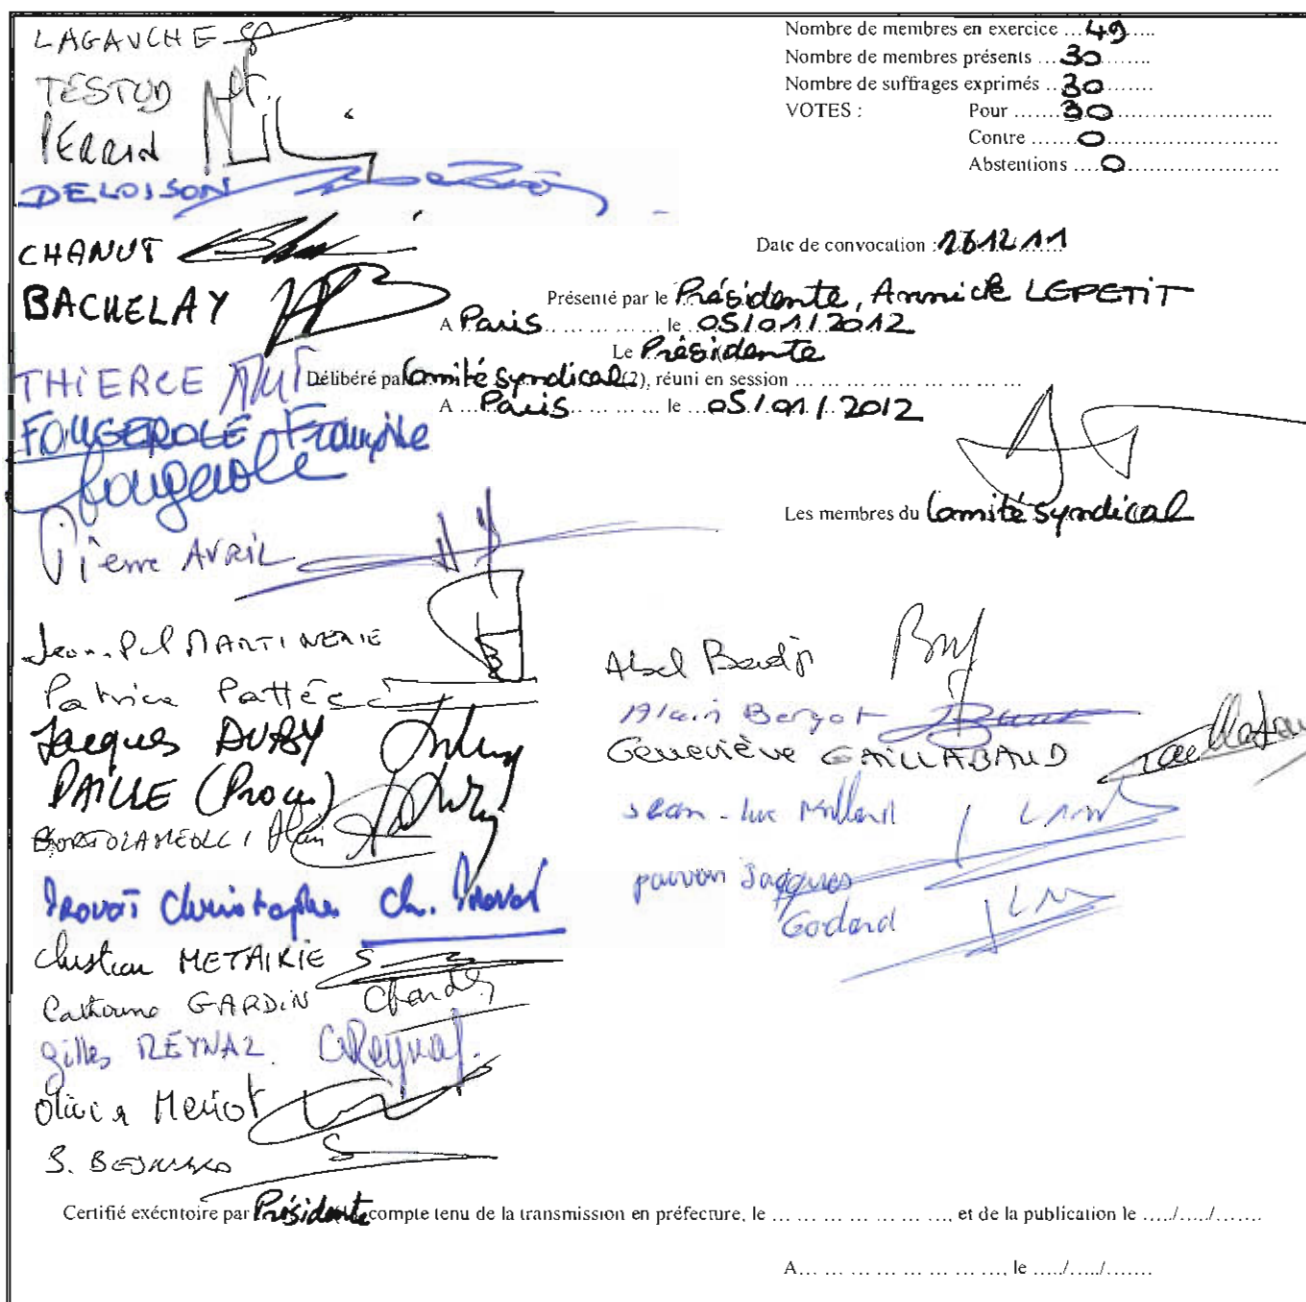 Nombre de membres en exercice ... 49 .....
Nombre de membres présents ... 30 ........
Nombre de suffrages exprimés .. 30 ........
VOTES : Pour ....... 30 ..........................
Contre ....... 0 ..........................
Abstentions .... 0 ......................
Date de convocation : 26.12.11
Présenté par le Présidente, Annick LEPETIT
A Paris .. ... ... ... ... le .. 05/01/2012
Le Présidente
Délibéré par Comité syndical (2), réuni en session ... ... ... ... ... ... ... ... ...
A ... Paris .. ... ... ... le ... 05/01/2012
Les membres du Comité syndical
LAGAUCHE
TESTUD
PERRIN
DELOISON
CHANUT
BACHELAY
THIERCE
FOUGEROLE Françoise
fougerole
Pierre AVRIL
MARTINERIE
Patrice Pattée
Jacques DUBY
PAILLE (Proc.)
BORTOLAMEOLLI Alain
Provot Christophe Ch. Provot
Christian METAIRIE
Catherine GARDIN
Gilles REYNAL
Olivier Meriot
Abel
Alain Bergot
Geneviève GAILLABAUD
Jean-Luc
pouvoir Jacques
Godard
Certifié exécutoire par Présidente compte tenu de la transmission en préfecture, le ... ... ... ... ... ... ..., et de la publication le ...../...../.......
A... ... ... ... ... ... ... ..., le ...../...../.......